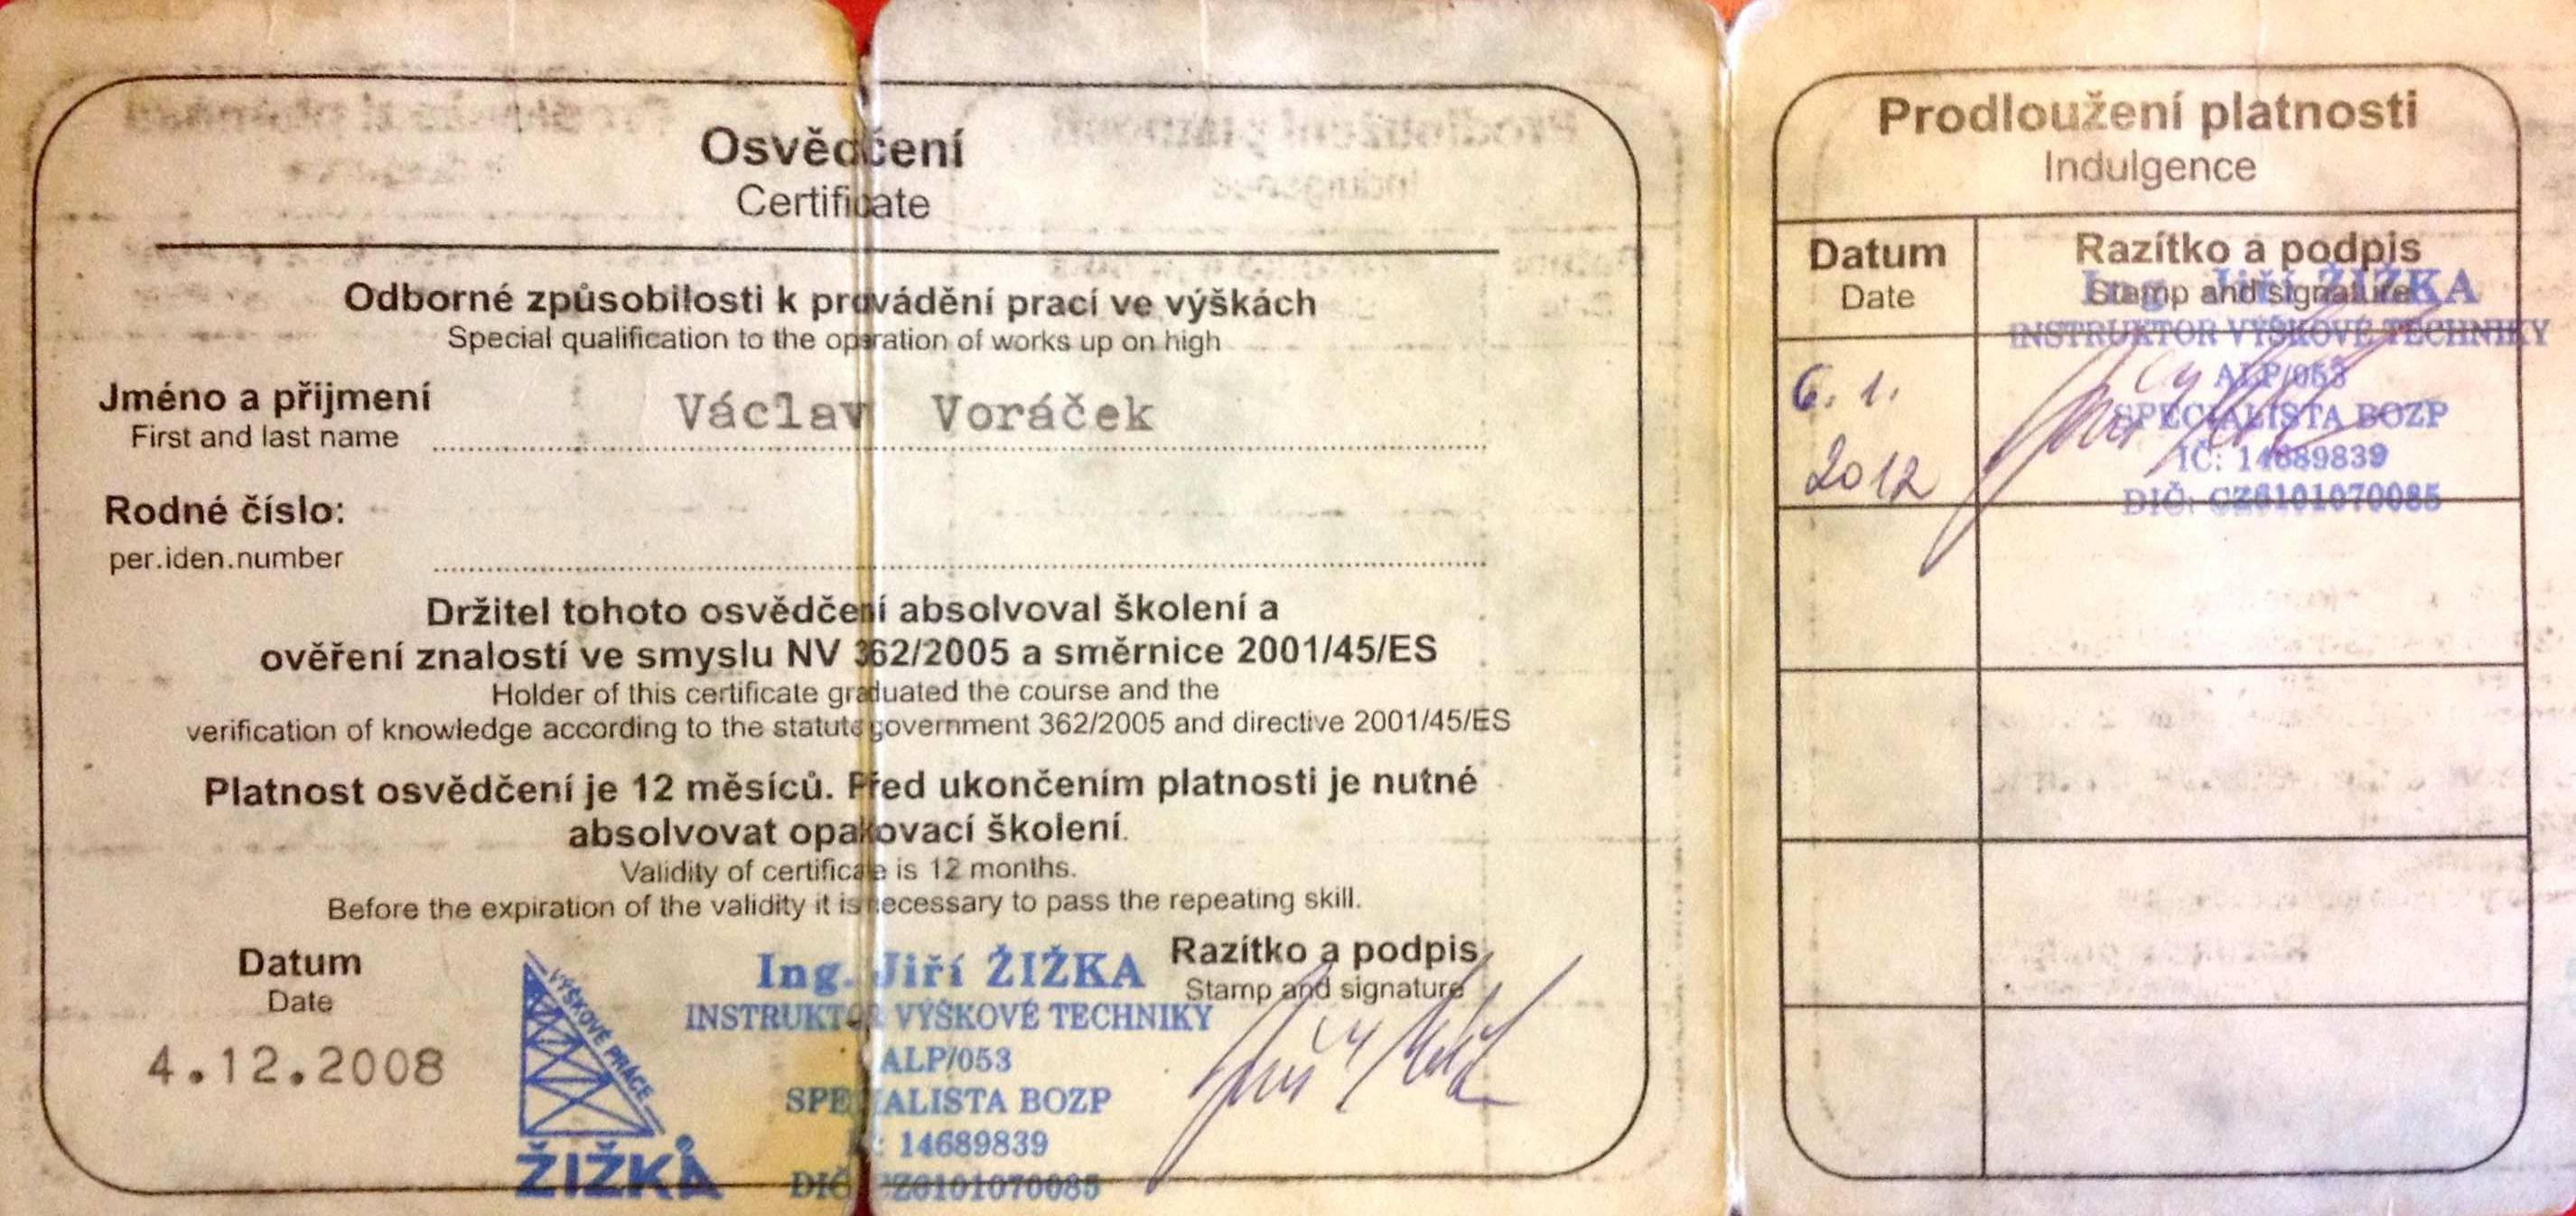 Osvědčení
Certificate
Odborné způsobilosti k provádění prací ve výškách
Special qualification to the operation of works up on high
Jméno a přijmení
First and last name
Václav Voráček
Rodné číslo:
per.iden.number
Držitel tohoto osvědčení absolvoval školení a
ověření znalostí ve smyslu NV 362/2005 a směrnice 2001/45/ES
Holder of this certificate graduated the course and the
verification of knowledge according to the statute government 362/2005 and directive 2001/45/ES
Platnost osvědčení je 12 měsíců. Před ukončením platnosti je nutné
absolvovat opakovací školení.
Validity of certificate is 12 months.
Before the expiration of the validity it is necessary to pass the repeating skill.
Datum
Date
4.12.2008
VÝŠKOVÉ PRÁCE
ŽIŽKA
Razítko a podpis
Stamp and signature
Ing. Jiří ŽIŽKA
INSTRUKTOR VÝŠKOVÉ TECHNIKY
ALP/053
SPECIALISTA BOZP
IČ: 14689839
DIČ: CZ6101070085
Prodloužení platnosti
Indulgence
Datum
Date
Razítko a podpis
Stamp and signature
6. 1.
2012
Ing. Jiří ŽIŽKA
INSTRUKTOR VÝŠKOVÉ TECHNIKY
ALP/053
SPECIALISTA BOZP
IČ: 14689839
DIČ: CZ6101070085